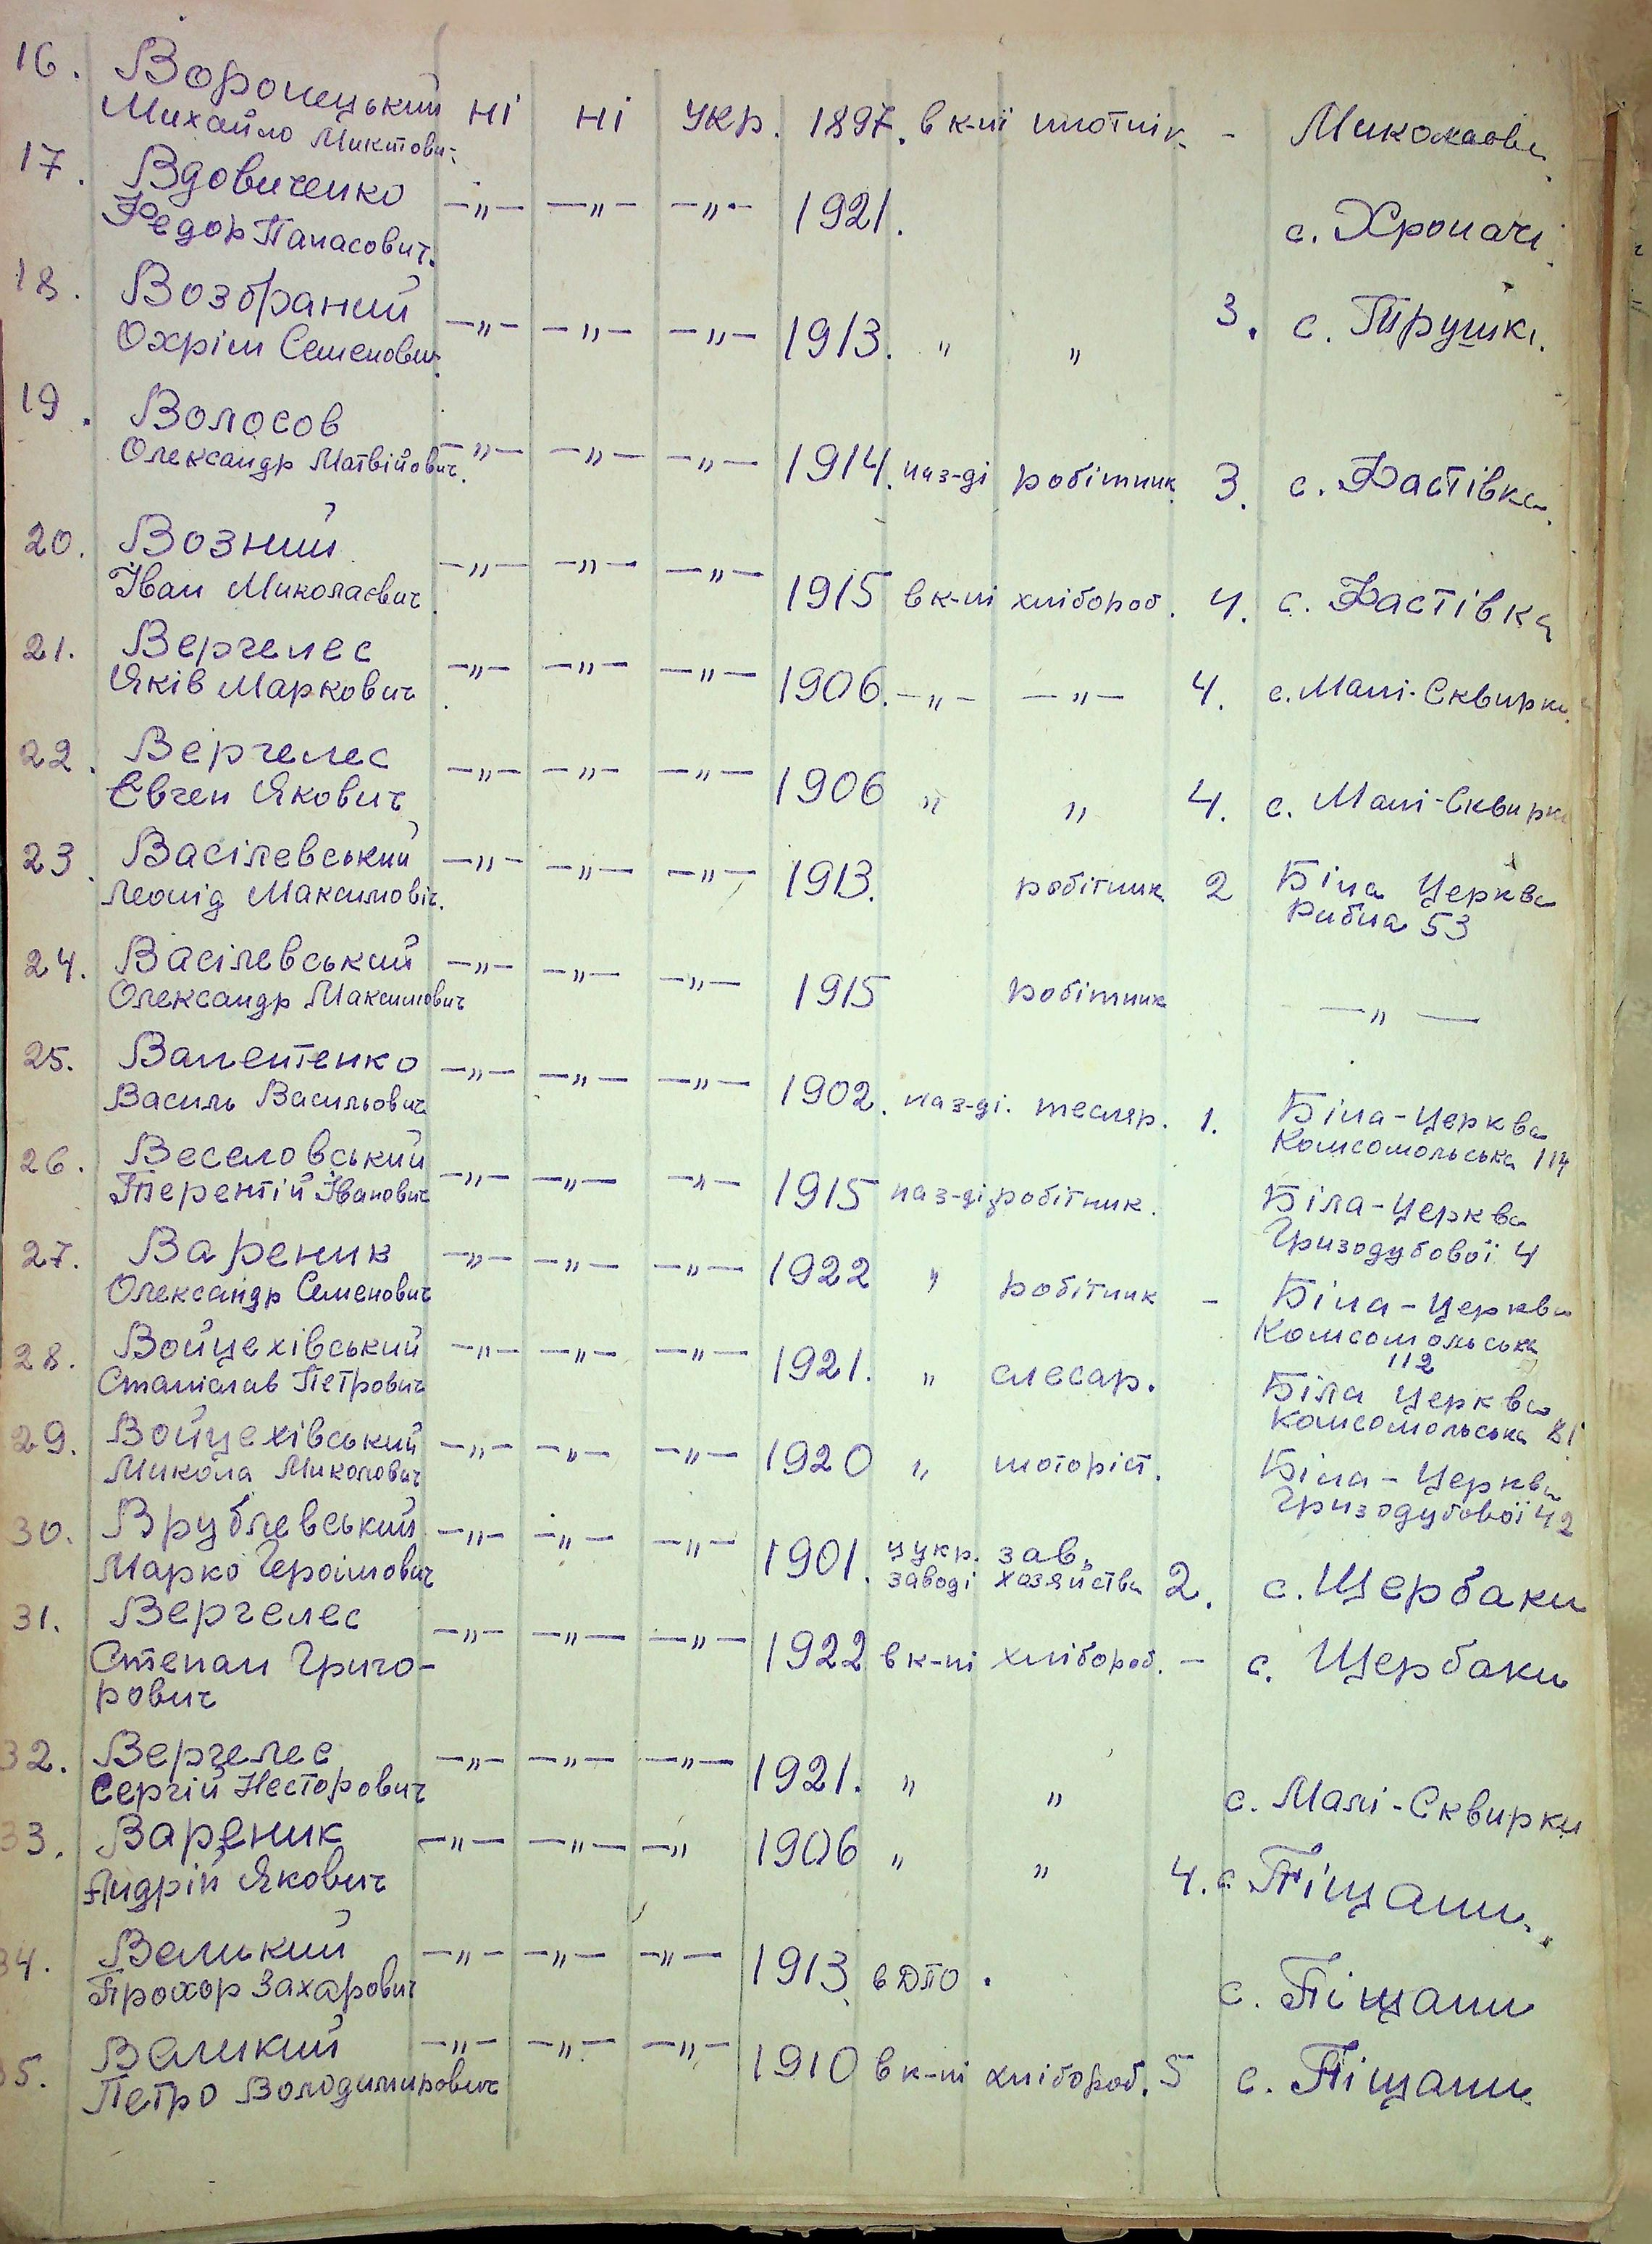 16. Воронецький
Михайло Микитович ні ні укр. 1897. в к-пі плотнік - Миколаївка
17. Вдовиченко
Федор Панасович. -„- -„- -„- 1921. с. Хропачі
18. Возбраний
Охрім Семенович -„- -„- -„- 1913. „ „ 3. с. Трушкі.
19. Волосов
Олександр Матвійович. -„- -„- -„- 1914. на з-ді робітник 3. с. Фастівка
20. Возний
Іван Миколаєвич. -„- -„- -„- 1915 в к-пі хлібороб. 4. с. Фастівка
21. Вергелес
Яків Маркович -„- -„- -„- 1906. -„- -„- 4. с. Малі-Сквирки
22. Вергелес
Євген Якович -„- -„- -„- 1906 „ „ 4. с. Малі-Сквирки
23. Васілевський
Леонід Максимовіч. -„- -„- -„- 1913. робітник 2 Біла Церква
Рибна 53
24. Васілевський
Олександр Максимович -„- -„- -„- 1915 робітник -„-
25. Валентенко
Василь Васильович -„- -„- -„- 1902. на з-ді. тесляр. 1. Біла-Церква
Комсомольська 114
26. Веселовський
Терентій Іванович -„- -„- -„- 1915 на з-ді робітник. Біла-Церква
Гризодубової 4
27. Вареник
Олександр Семенович -„- -„- -„- 1922 „ робітник - Біла-Церква
Комсомольська
112
28. Войцехівський
Станіслав Петрович -„- -„- -„- 1921. „ слесар. Біла Церква
Комсомольська 81
29. Войцехівський
Микола Миколович -„- -„- -„- 1920 „ моторіст. Біла-Церква
Гризодубової 42
30. Врублевський
Марко -„- -„- -„- 1901. цукр. зав.
заводі хазяйства 2. с. Щербаки
31. Вергелес
Степан Григо-
рович -„- -„- -„- 1922 в к-пі хлібороб. - с. Щербаки
32. Вергелес
Сергій Несторович -„- -„- -„- 1921. „ „ с. Малі-Сквирки
33. Вареник
Андрій Якович -„- -„- -„ 1906 „ „ 4. с. Піщани.
34. Великий
Прохор Захарович -„- -„- -„- 1913. в ДПО. с. Піщани
35. Великий
Петро Володимирович -„- -„- -„- 1910 в к-пі хлібороб. 5 с. Піщани.